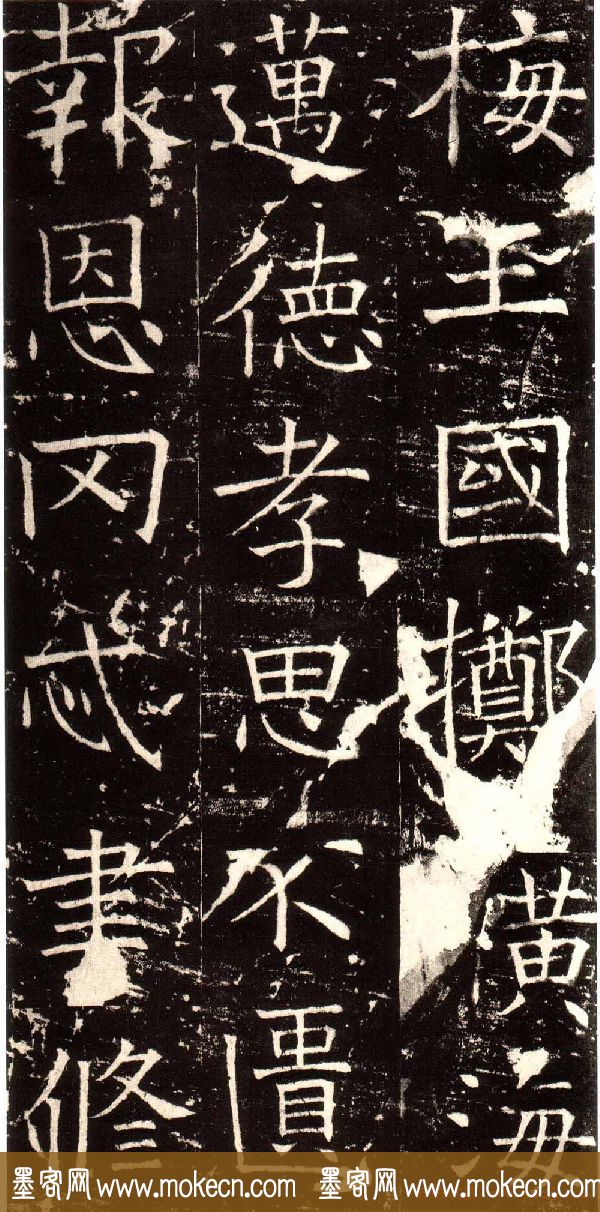 梅王國擲海
邁德孝思不匱
報恩罔忒書修
墨客网 www.mokecn.com 墨客网 www.mokecn.com